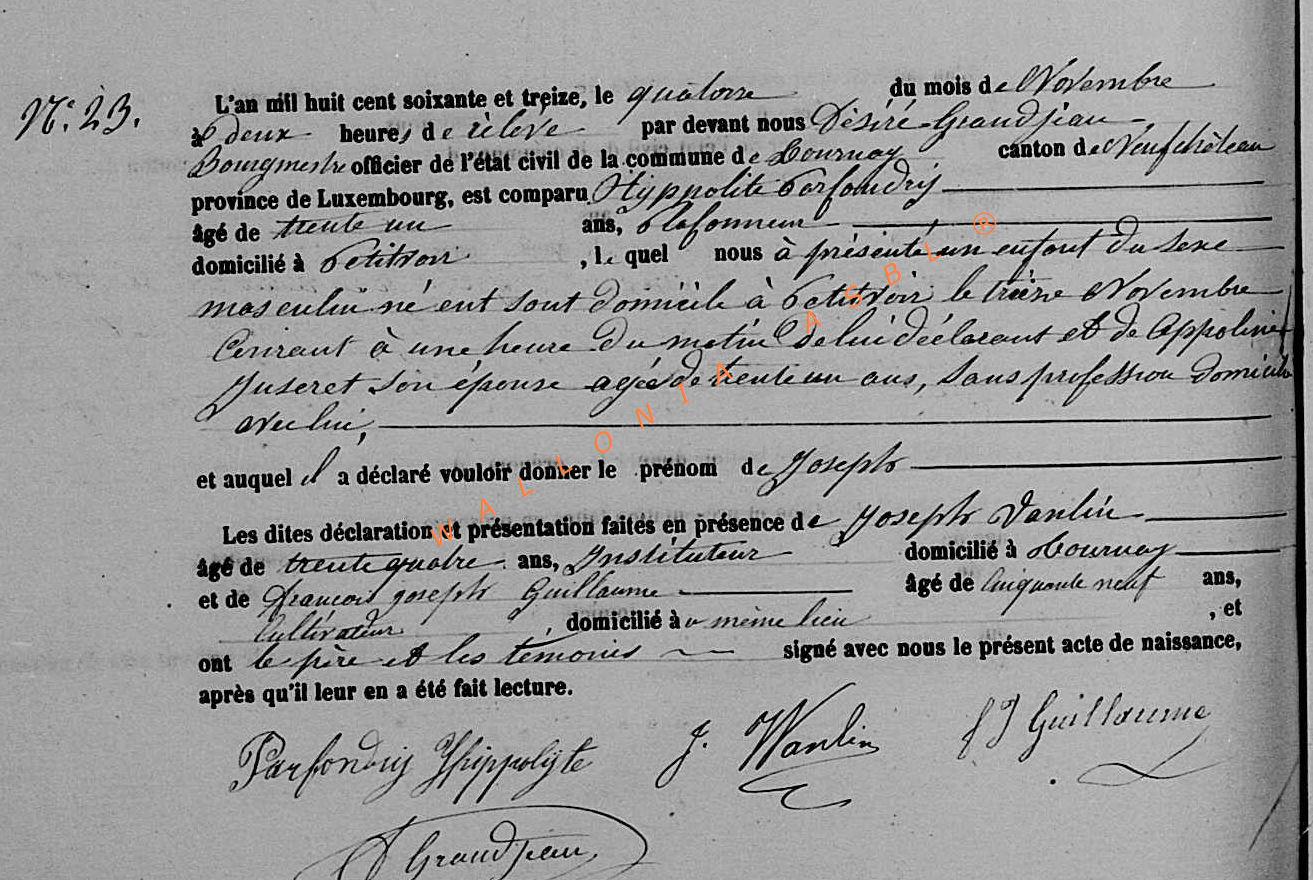 N° 23.
L'an mil huit cent soixante et treize, le quatorze du mois de Novembre
à deux heures de rélévé par devant nous Désiré Grandjean
Bourgmestre officier de l'état civil de la commune de Tournay canton de Neufchâteau
province de Luxembourg, est comparu Hyppolite Parfondrÿ
âgé de trente un ans, Plafonneur
domicilié à Petitvoir , le quel nous à présenté un enfant du sexe
masculin né ent sont domicile à Petitvoir le treize Novembre
Courant à une heure du matin de lui déclarant et de Appoline
Juseret son épouse agée de trente un ans, sans profession domicilié
avec lui,
et auquel il a déclaré vouloir donner le prénom de Joseph
Les dites déclaration et présentation faites en présence de Joseph Vanlin
âgé de trente quatre ans, Instituteur domicilié à Tournay
et de François joseph Guillaume âgé de Cinquante neuf ans,
Cultivateur , domicilié à u même lieu , et
ont le père et les témoins signé avec nous le présent acte de naissance,
après qu'il leur en a été fait lecture.
Parfondrÿ Hippolyte J. Wanlin f J Guillaume
D Grandjean
WALLONIA ASBL ®